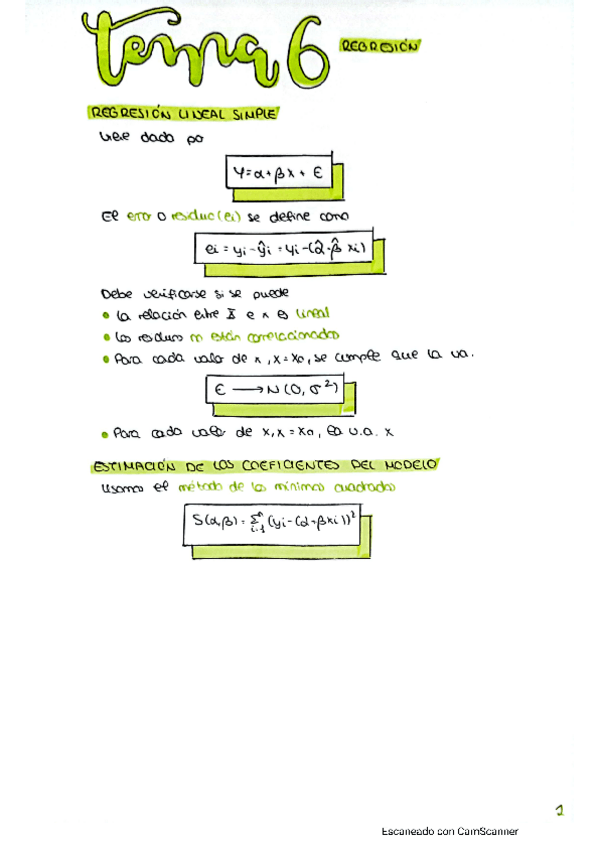 tema 6 REGRESIÓN
REGRESIÓN LINEAL SIMPLE
Viene dado por
Y=α+βx + ε
El error o residuo (ei) se define como
ei = yi - ŷi = yi - (α̂ + β̂ xi)
Debe verificarse si se puede
• La relación entre Y e x es lineal
• Los residuos no están correlacionados
• Para cada valor de x, x = x0, se cumple que la v.a.
ε → N(0, σ²)
• Para cada valor de x, x = x0, la v.a. x
ESTIMACIÓN DE LOS COEFICIENTES DEL MODELO
Usamos el método de los mínimos cuadrados
S(α,β) = Σⁿi=1 (yi - (α + βxi))²
1
Escaneado con CamScanner